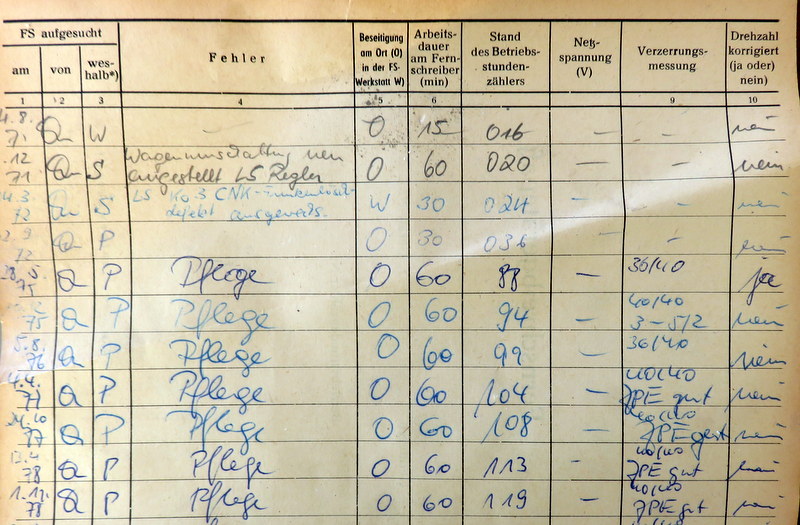 FS aufgesucht
am von wes-halb*)
Fehler
Beseitigung am Ort (O) in der FS-Werkstatt W)
Arbeits-dauer am Fern-schreiber (min)
Stand des Betriebs-stunden-zählers
Netz-spannung (V)
Verzerrungs-messung
Drehzahl korrigiert (ja oder) nein)
1 2 3 4 5 6 9 10
71 W — O 15 016 — — nein
12 71 S neu eingestellt LS Regler O 60 020 — — nein
72 S LS Ko 3 defekt W 30 024 — — nein
72 P O 30 036 — — nein
75 P Pflege O 60 88 — 36/40 ja
75 P Pflege O 60 94 — 40/40 3-5/2 nein
5.8. 76 P Pflege O 60 99 — 36/40 nein
4.4. 77 P Pflege O 60 104 — 40/40 JPE gut nein
77 P Pflege O 60 108 — 40/40 JPE gest nein
78 P Pflege O 60 113 - 40/40 JPE gut nein
78 P Pflege O 60 119 — 40/40 JPE gut nein